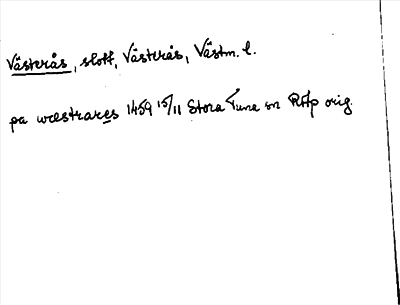 Västerås, slott, Västerås, Västm. l.
pa wæstrares 1459 15/11 Stora Tuna sn RAp orig.